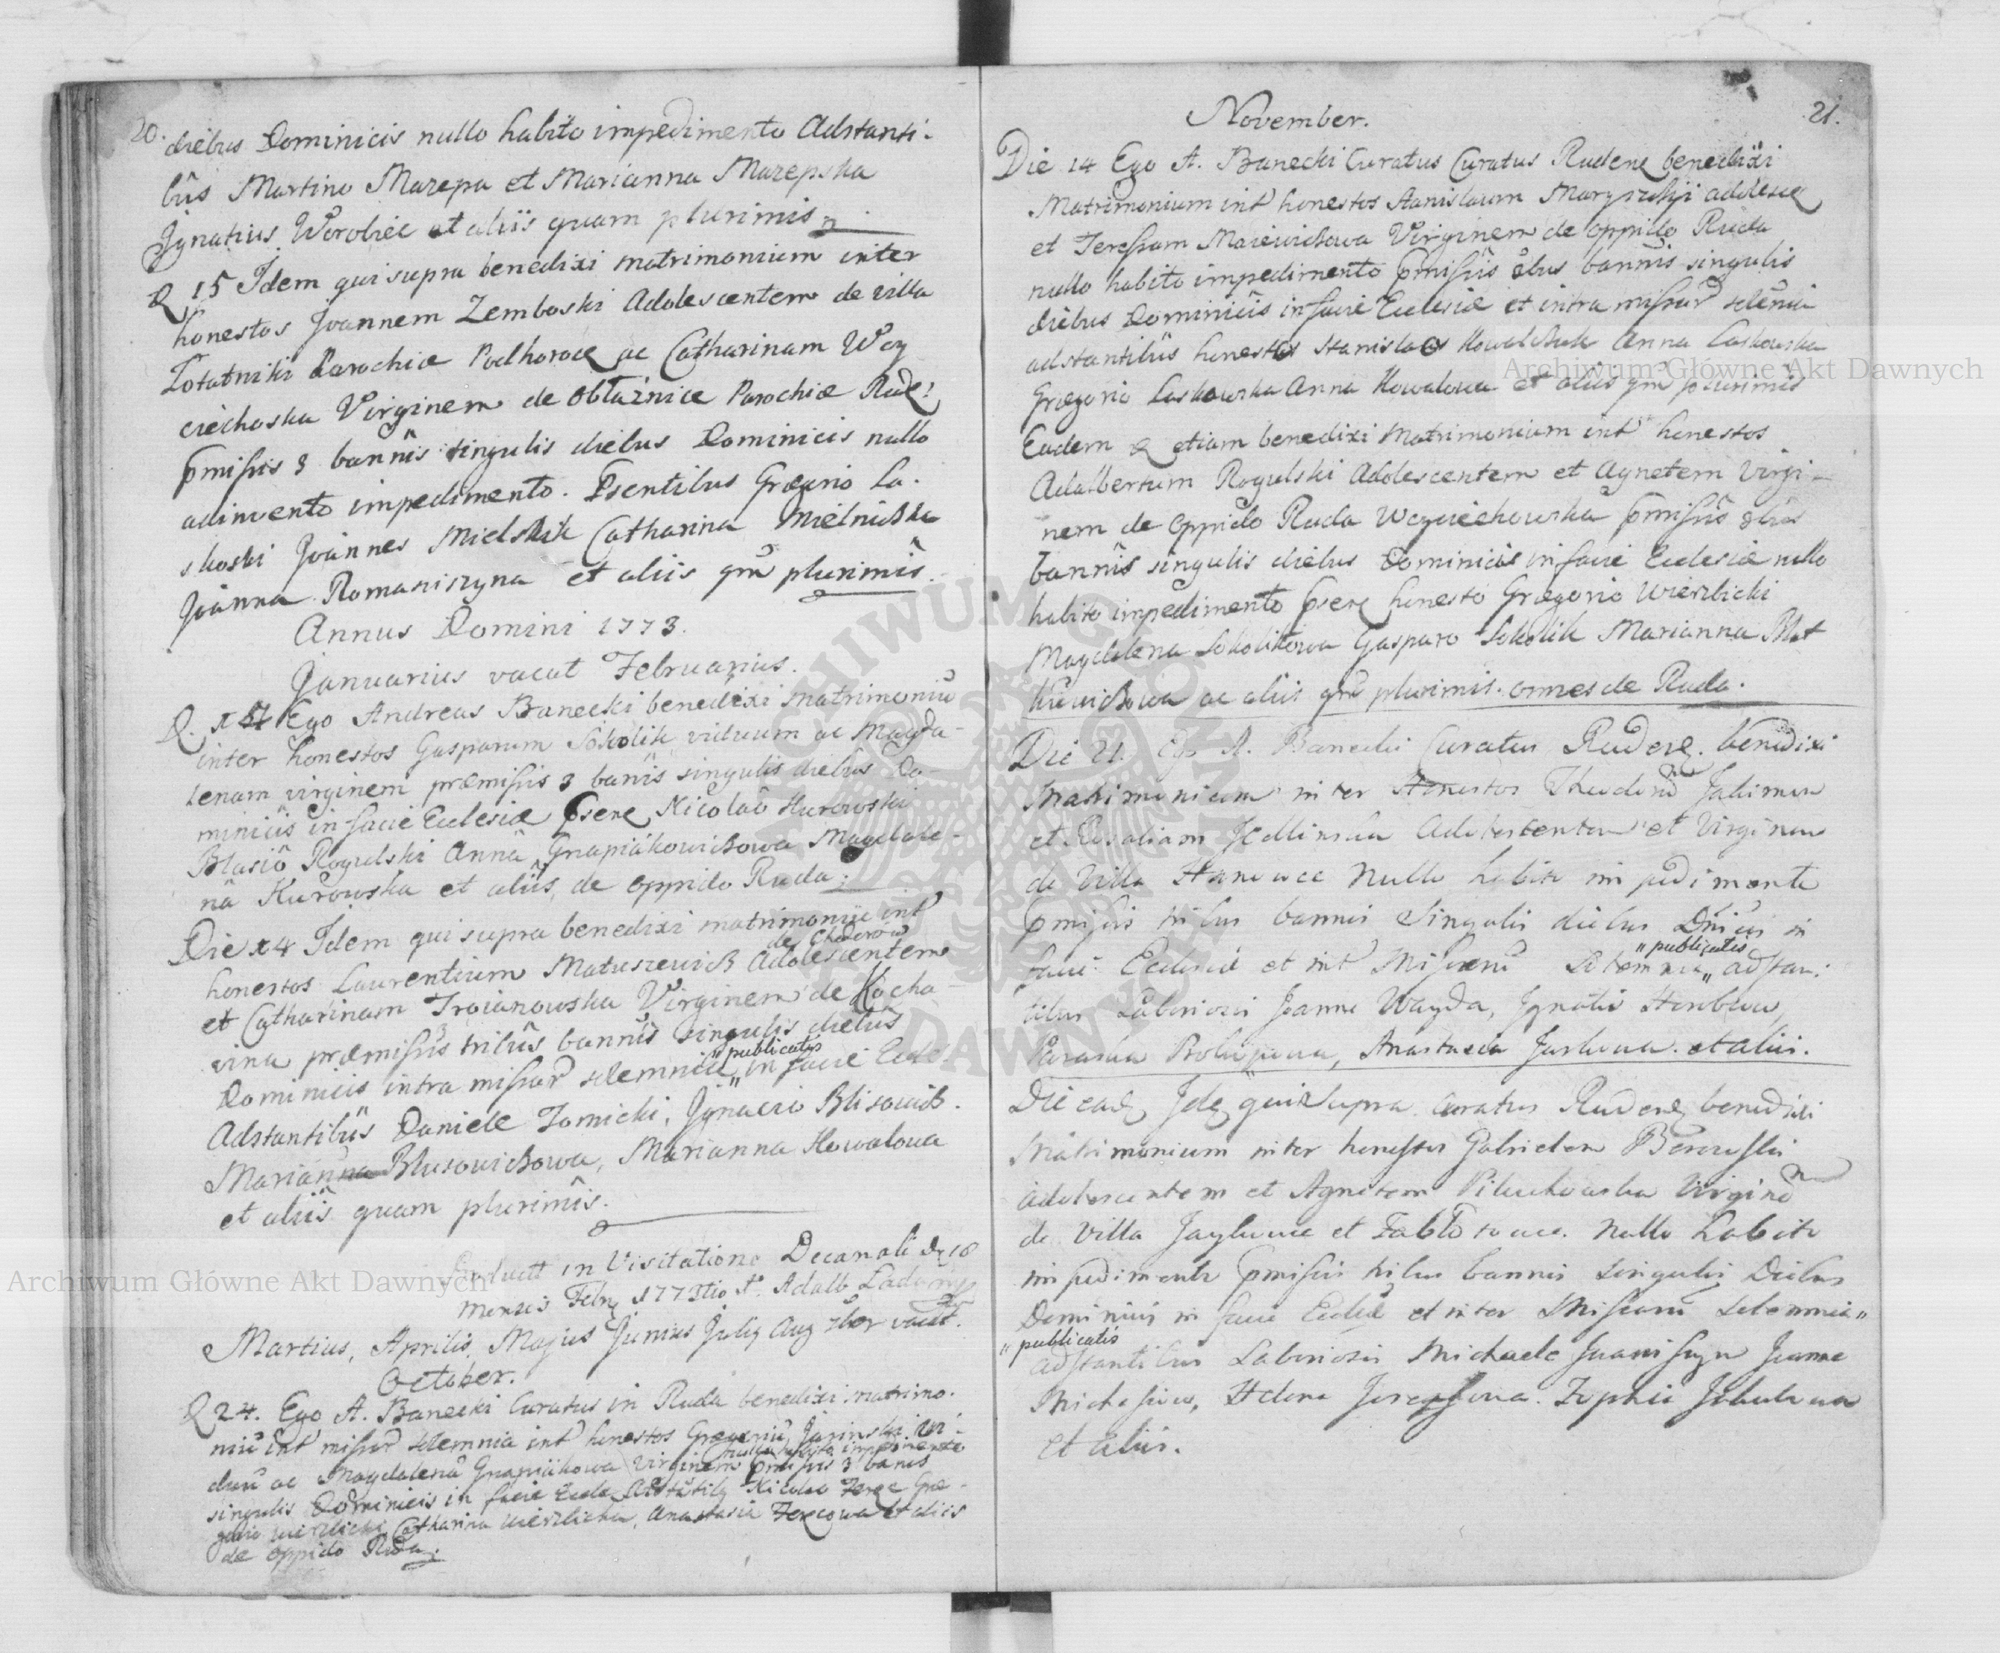 20.
diebus Dominicis nullo habito impedimento Adstanti-
bus Martino Mazepa et Marianna Mazepska
Ignatius Worobiec et aliis quam plurimis
D 15 Idem qui supra benedixi matrimonium inter
honestos Joannem Zemboski Adolescentem de villa
Parochiæ Podhorce ac Catharinam Woy
ciechoska Virginem de Obłaźnice Parochiæ Rude:
pmissis 3 bannis singulis diebus Dominicis nullo
adinvento impedimento. Psentibus Gregorio La.
skoski Joannes Mielnik Catharina Mielnicka
Joanna Romaniszyna et aliis qm plurimis.
Annus Domini 1773.
Januarius vacat Februarius.
D. Ego Andreas Banecki benedixi Matrimoniu
inter honestos Gasparum Sokolik viduum ac Magda-
lenam virginem præmissis 3 banis singulis diebus Do-
minicis in facie Ecclesiæ psene Nicolao Kurowski
Blasio Rogulski Anna Gnapiakowiczowa Magdale-
na Kurowska et aliis de oppido Ruda;
Die 14 Idem qui supra benedixi matrimoniu int
de Chodorow
honestos Laurentium Matuszewicz Adolescentem
et Catharinam Troianowska Virginem de Kocha-
vina præmissis tribus bannis singulis diebus
" publicatis
Dominicis intra missar solemnia " in facie Eccle
Adstantibus Daniele Tomicki, Ignacio Blisowicz.
Marianna Blusowiczowa, Marianna Kowalowa
et aliis quam plurimis.
in Visitatione Decanali D 18
mensis Febr 1773tio A. Adalb Ladom
Martius, Aprilis, Majus Junius July Aug 7br vacat.
October.
D 24. Ego A. Banecki Curatus in Ruda benedixi matrimo.
niu int missar solemnia int honestos Gregoriu Jarinski vi-
nullo habito impedimento
duu ac Magdalena Gnapiakowa virginem pmissis 3 banis
singulis Dominicis in facie Eccle Adstatib Nicolao Ferec Gre-
gorio Wierzbicki Catharina Wierzbicka, Anastasia Ferecowa et aliis
de oppido Ruda;
21.
November.
Die 14 Ego A. Banecki Curatus Curatus Rudene benedixi
Matrimonium int honestos Stanislaum adolesce
et Teressam Maiewiczowa Virginem de oppido Ruda
nullo habito impedimento pmissis 3bus bannis singulis
diebus Dominicis in facie Ecclesiæ et intra missar solenia
adstantibus honestos Stanislaos Kowalczuk Anna Laskowska
Gregorio Laskowska Anna Kowalowa et aliis qm plurimis
Eadem D etiam benedixi Matrimonium int honestos
Adalbertum Rogulski Adolescentem et Agnetem Virgi-
nem de oppido Ruda Woyciechowska pmissis 3bus
bannis singulis diebus Dominicis in facie Ecclesiæ nullo
habito impedimento psene honesto Gregorio Wierzbicki
Magdalena Sokolikowa Gasparo Sokolik Marianna Mat
kiewiczowa ac aliis qm plurimis. omnes de Ruda.
Die 21. Ego A. Banecki Curatus Rudene. benedixi
Matrimonium inter Honestos Theodoru Jakimow
et Rosaliam Adolescentem et Virginem
de Villa Nullo habito impedimento
pmissis tribus bannis Singulis diebus Dnicis in
" publicatis
facie Ecclesiæ et int Missaru Solemnia " adstan:
tibus Laboriosis Joanne Wayda, Ignatio
Paraska Anastasia et aliis.
Die ead Ide qui supra curatus Rudene benedixi
Matrimonium inter honestos Gabrielem
adolescentem et Agnetem Virgine
de Villa et Nullo habito
impedimento pmissis tribus bannis singulis Diebus
Dominicis in facie Ecclæ et inter Missaru Solemnia "
" publicatis
adstantibus Laboriosis Michaele Joanne
Helena Zophia
et aliis.
Archiwum Główne Akt Dawnych
Archiwum Główne Akt Dawnych
ARCHIWUM GŁÓWNE AKT DAWNYCH